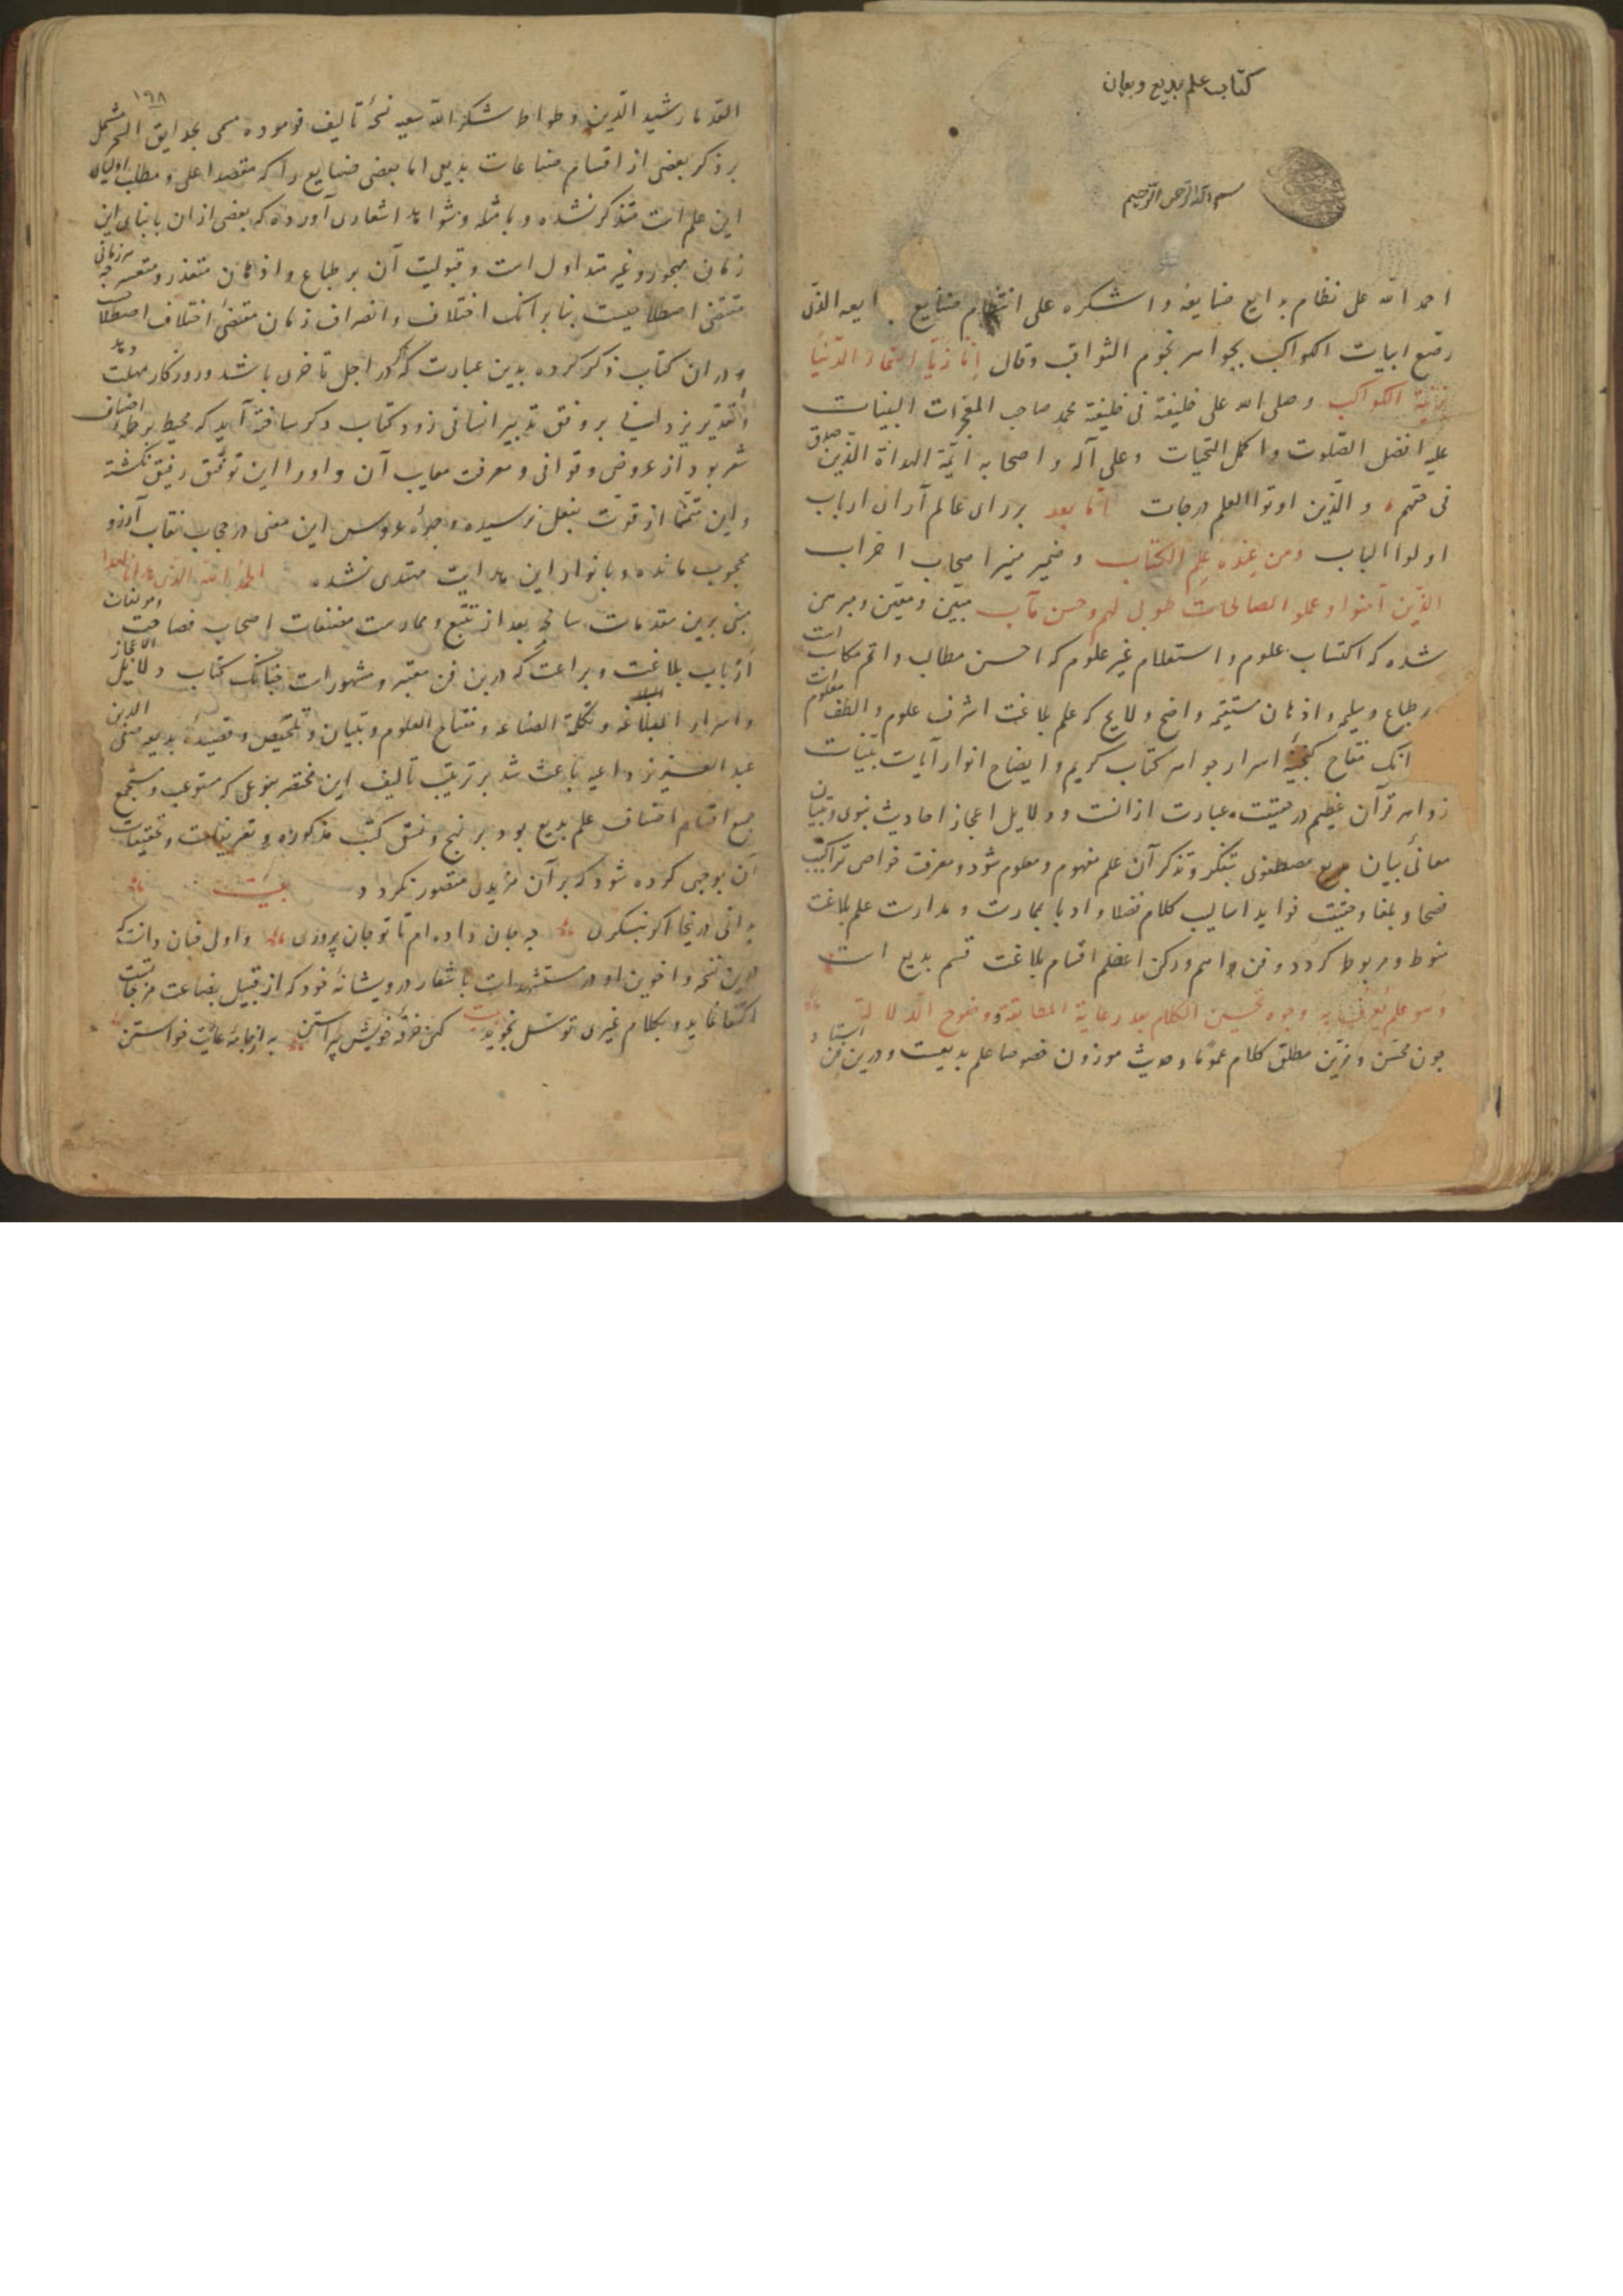 کتاب علم بدیع و بیان
بسم الله الرحمن الرحیم
احمد الله علی نظام بدایع صنایعه و اشکره علی انتظام صنایع بدایعه الذی
رصع ابیات الکواکب بجواهر نجوم الثواقب وقال انا زینا السماء الدنیا
بزینة الکواکب وصلی الله علی خلیفته فی خلیقته محمد صاحب المعجزات البینات
علیه افضل الصلوت واکمل التحیات وعلی آله واصحابه ائمة الهداة الذین
فی حقهم والذین اوتوا العلم درجات اما بعد بر رای عالم آرای ارباب
اولوا الباب ومن عنده علم الکتاب وضمیر منیر اصحاب احزاب
الذین آمنوا وعملوا الصالحات طوبی لهم وحسن مآب مبین ومعین ومبرهن
شده که اکتساب علوم و استعلام غیر علوم که احسن مطالب و اتم مکاسب است
بر طباع سلیمه و اذهان مستقیمه واضح و لایح که علم بلاغت اشرف علوم و الطف معلومات
انک مفتاح گنجینه اسرار جواهر کتاب کریم و ایضاح انوار آیات بینات
زواهر قرآن عظیم در حقیقت عبارت ازانست و دلایل اعجاز احادیث نبوی و تبیان
معانی بیان مصطفوی بتفکر و تذکر آن علم مفهوم و معلوم شود و معرفت خواص تراکیب
فصحا و بلغا و حقیقت فواید اسالیب کلام فضلا و ادبا بممارست و مدارست علم بلاغت
منوط و مربوط کردد و فن اهم و رکن اعظم اقسام بلاغت قسم بدیع است
وهو علم یعرف به وجوه تحسین الکلام بعد رعایة المطابقة ووضوح الدلالة
چون محسن و مزین مطلق کلام عموما و حدیث موزون خصوصا علم بدیعست و درین فن استاد
۱۹۸
القدما رشید الدین وطواط شکر الله سعیه نسخه تالیف فرموده مسمی بحدایق السحر مشتمل
بر ذکر بعضی از اقسام صناعات بدیل اما بعضی صنایع را که مقصد اعلی و مطلب اولیای
این علم است متذکر نشده و بامثله و شواهد اشعاری آورده که بعضی ازان بابنای این
زمان مهجور و غیر متداول است و قبولیت آن بر طباع و اذهان متعذر و متعسر چه هر زمانی
مقتضی اصطلاحیست بنابر انک اختلاف و انصراف زمان مقتضی اختلاف اصطلاحست
و در ان کتاب ذکر کرده بدین عبارت که اگر در اجل تاخری باشد و روزکار مهلت دهد
و تقدیر یزدانی بر وفق تدبیر انسانی رود کتاب دکر ساخته آید که محیط بر جمله اصناف
شعر بود از عروض و قوافی و معرفت معایب آن و اورا این توفیق رفیق نکشته
و این متمنا از قوت بفعل نرسیده و جلوه عروس این معنی در حجاب نقاب آرزو
محجوب مانده و بانوار این هدایت مهتدی نشده الحمد لله الذی هدانا لهذا
مبنی برین مقدمات سانحه بعد از تتبع و ممارست مصنفات اصحاب فصاحت و مولفات
ارباب بلاغت و براعت که درین فن معتبر و مشهورات چنانک کتاب دلایل الاعجاز
و اسرار البلاغه و تکملة الصناعه و مفتاح العلوم و تبیان و تلخیص و قصیده بدیعیه صفی الدین
عبد العزیز داعیه باعث شد بر ترتیب تالیف این مختصر بنوعی که مستوعب و مستجمع
جمیع اقسام اصناف علم بدیع بود بر نهج و نسق کتب مذکوره و تعریفات و تحقیقات
آن بوجهی کرده شود که بر آن مزیدی متصور نکردد و بیت
بدانی در نتیجا اکر بنکری چه جان داده ام تا تو جان پروری و اولی چنان دانست که
درین نسخه و اخوین او در مستشهدات باشعار درویشانه خود که از قبیل بضاعت مزجاتست
اکتفا نماید و بکلام غیری توسل نجوید بیت کهن خرقه خویش پیراستن به از جامه عاریت خواستن